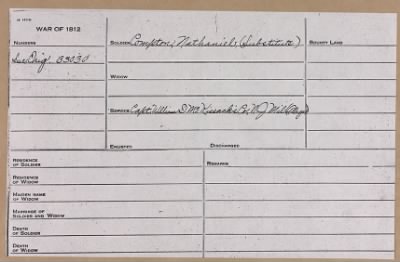 WAR OF 1812
NUMBERS
SOLDIER Compton, Nathaniel, (Substitute)
BOUNTY LAND
Sur. Orig. 33030
WIDOW
SERVICE Capt. William D. McKissack's Co. N J Mil
ENLISTED
DISCHARGED
RESIDENCE OF SOLDIER
REMARKS
RESIDENCE OF WIDOW
MAIDEN NAME OF WIDOW
MARRIAGE OF SOLDIER AND WIDOW
DEATH OF SOLDIER
DEATH OF WIDOW